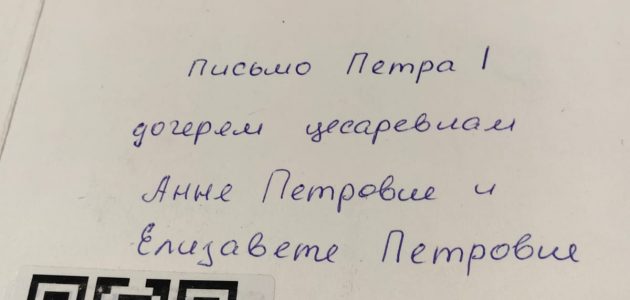 письмо Петра I
дочерем цесаревнам
Анне Петровне и
Елизавете Петровне